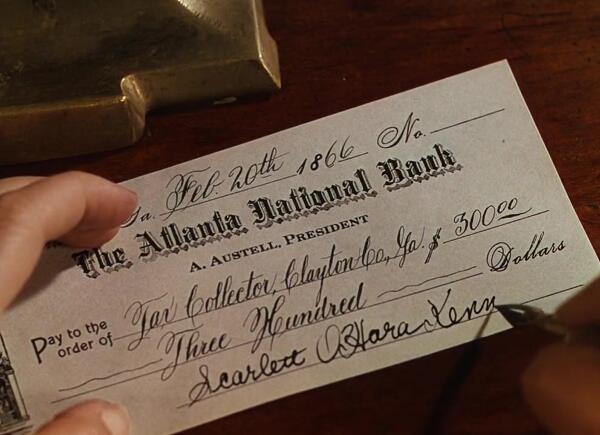 Ga. Feb. 20th 1866 No.
The Atlanta National Bank
A. Austell, President
Pay to the order of Tax Collector, Clayton Co., Ga. $ 300 00
Three Hundred Dollars
Scarlett O'Hara Kenn